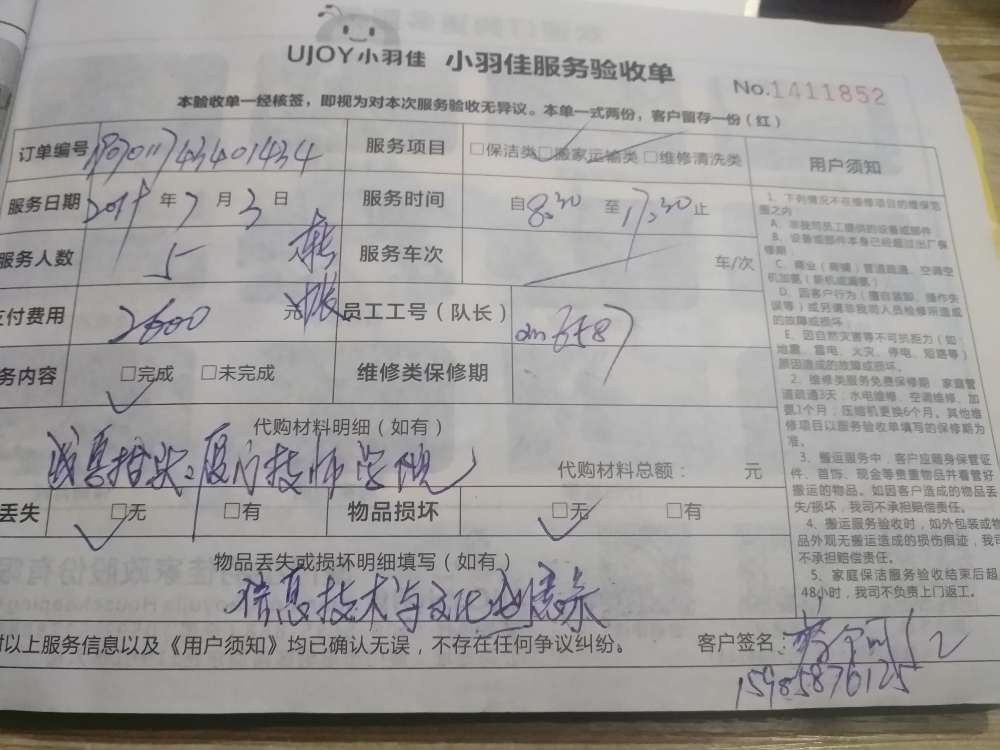 UJOY小羽佳 小羽佳服务验收单
No.1411852
本验收单一经核签，即视为对本次服务验收无异议。本单一式两份，客户留存一份（红）
订单编号 服务项目 □保洁类 □搬家运输类 □维修清洗类 用户须知
服务日期 2019年7月3日 服务时间 自8:30至17:30止
服务人数 5 服务车次 车/次
付费用 2600元 员工工号（队长）
务内容 □完成 □未完成 维修类保修期
代购材料明细（如有）
厦门技师学院 代购材料总额： 元
丢失 □无 □有 物品损坏 □无 □有
物品丢失或损坏明细填写（如有）
信息技术与文化
以上服务信息以及《用户须知》均已确认无误，不存在任何争议纠纷。 客户签名：
15985876125
1、下列情况不在维修项目的维保范
围之内
A、非我司员工提供的设备或部件
B、设备或部件本身已经超过出厂保
修期
C、商业（商铺）管道疏通、空调空
机加氨（新机或漏氨）
D、因客户行为（擅自装卸、操作失
误等）或另请非我司人员检修所造成
的故障或损坏
E、因自然灾害等不可抗拒力（如：
地震、雷电、火灾、停电、短路等）
原因造成的故障或损坏。
2、维修类服务免费保修期：家庭管
道疏通3天；水电维修、空调维修、加
氨1个月；压缩机更换6个月。其他维
修项目以服务验收单填写的保修期为
准。
3、搬运服务中，客户应随身保管证
件、首饰、现金等贵重物品并看管好
搬运的物品。如因客户造成的物品丢
失/损坏，我司不承担赔偿责任。
4、搬运服务验收时，如外包装或物
品外观无搬运造成的损伤痕迹，我司
不承担赔偿责任。
5、家庭保洁服务验收结束后超
48小时，我司不负责上门返工。